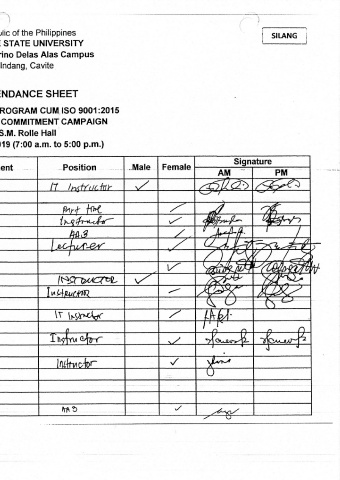 SILANG
ublic of the Philippines
E STATE UNIVERSITY
erino Delas Alas Campus
Indang, Cavite
NDANCE SHEET
ROGRAM CUM ISO 9001:2015
COMMITMENT CAMPAIGN
S.M. Rolle Hall
019 (7:00 a.m. to 5:00 p.m.)
ent Position Male Female Signature
AM PM
IT Instructor ✓
Part time ✓
Instructor ✓
AA3 ✓
Lecturer ✓
✓
INSTRUCTOR ✓
Instructor ✓
IT Instructor ✓
Instructor ✓
Instructor ✓
AA3 ✓